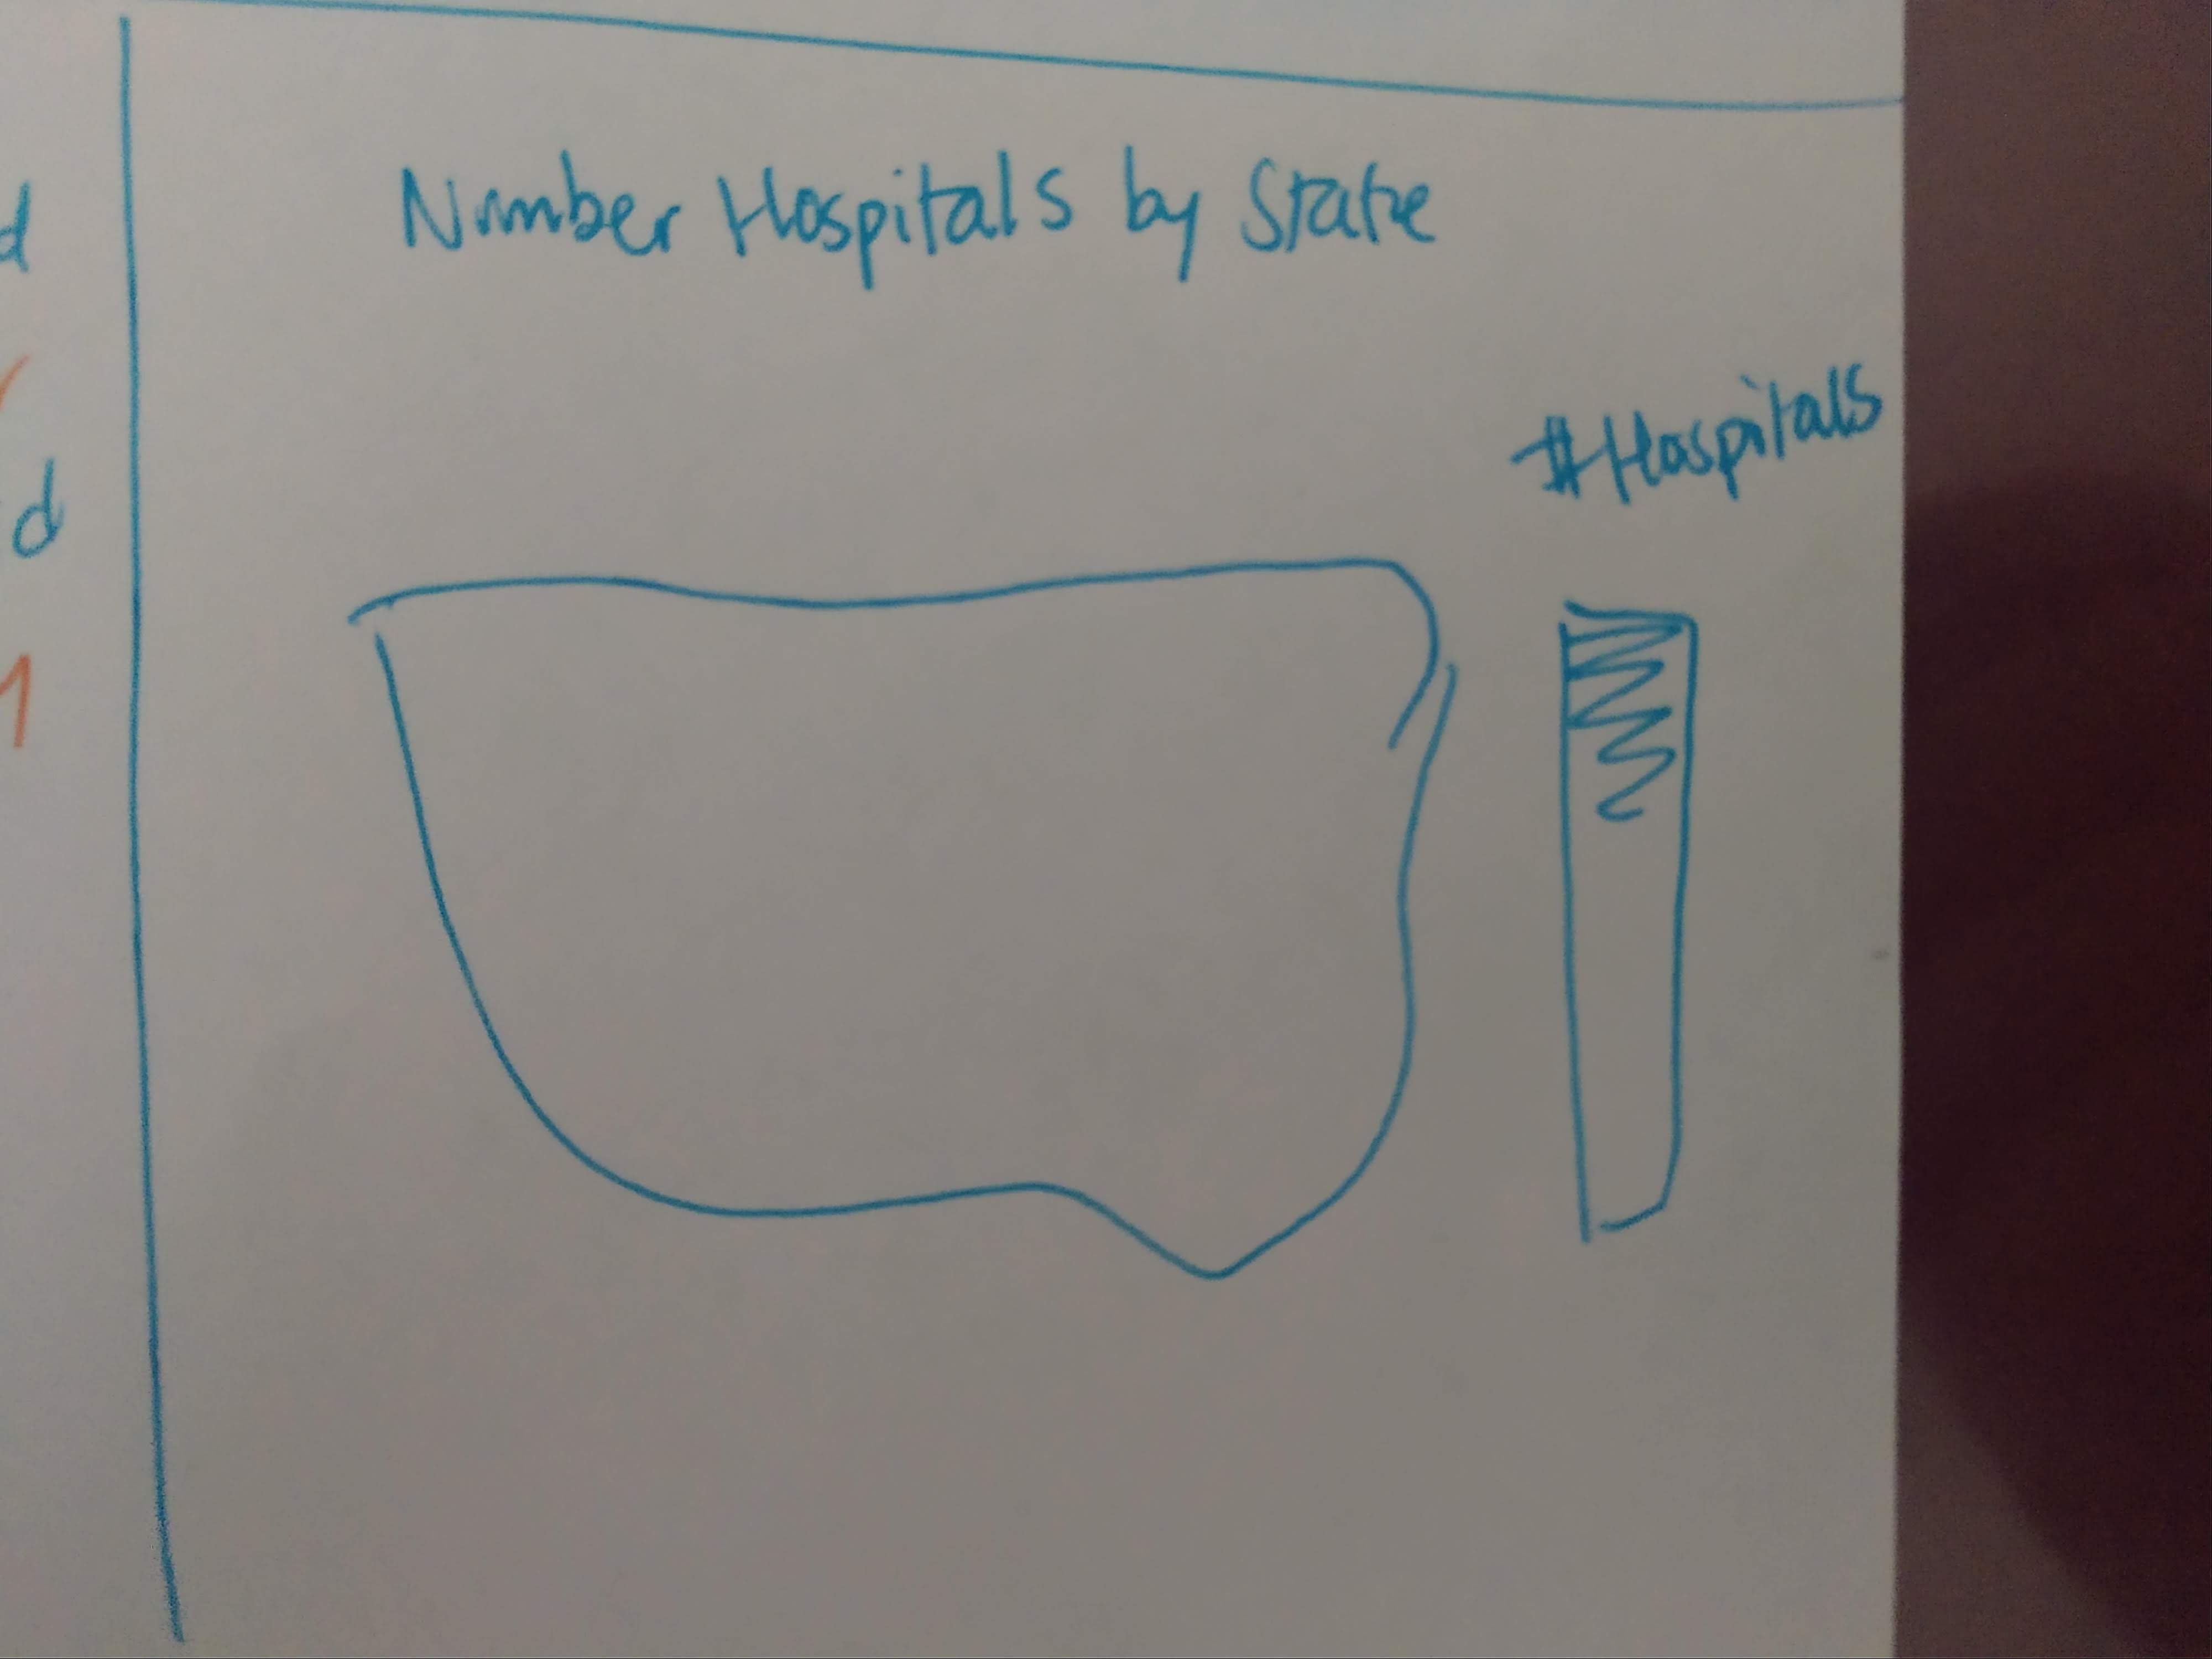 Number Hospitals by State
#Hospitals
d
d
1